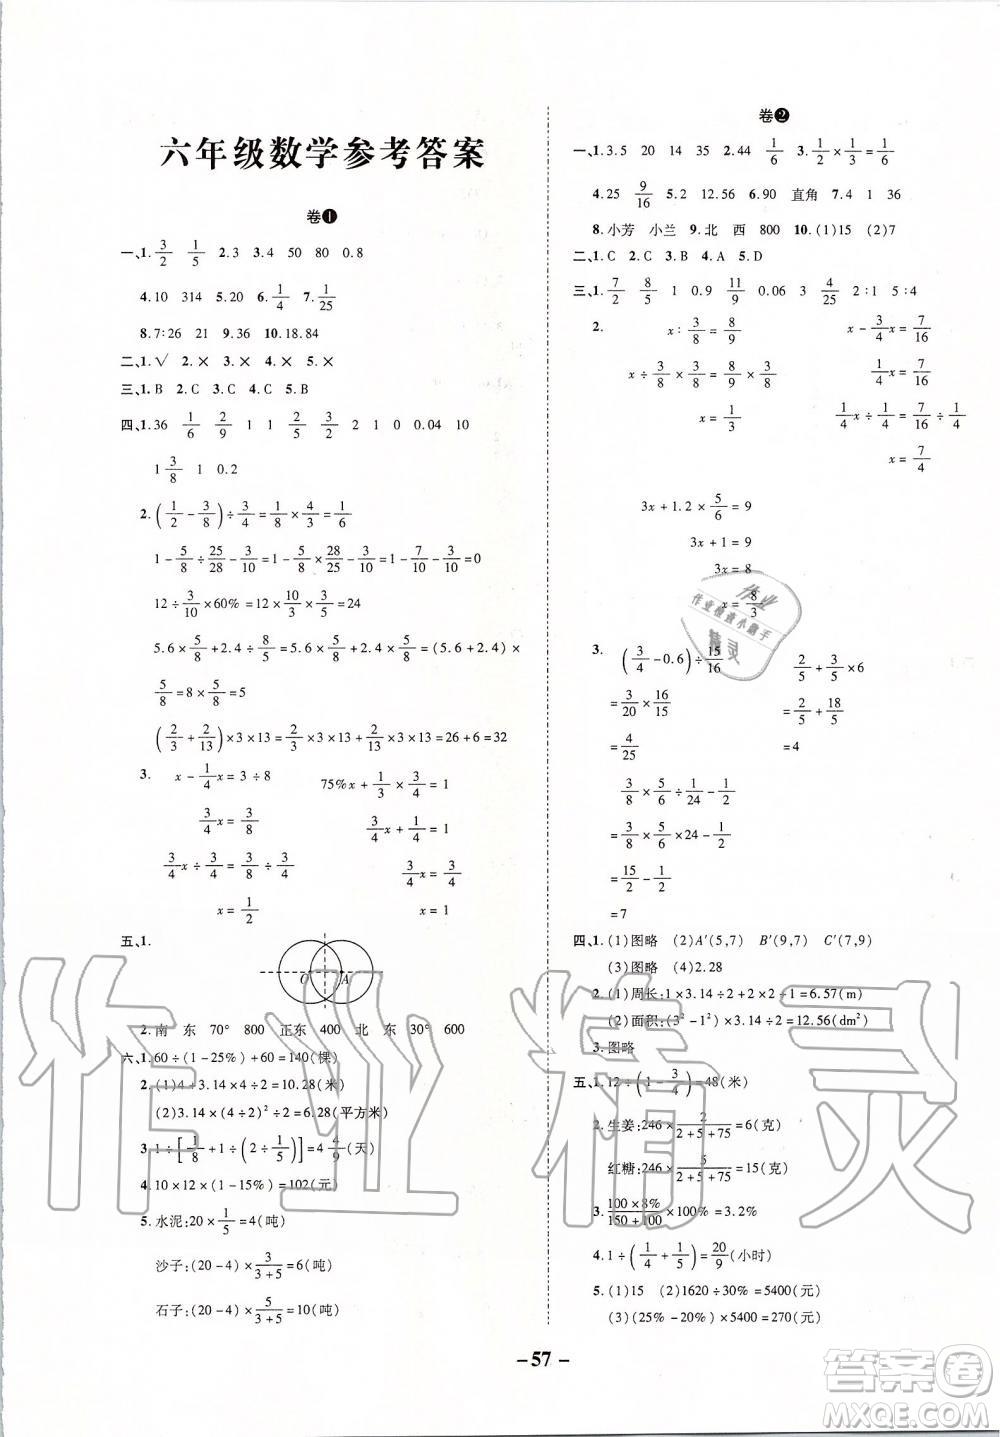 六年级数学参考答案
卷❶
一、1. 3/2 1/5 2.3 3.4 50 80 0.8
4.10 314 5.20 6. 1/4 7. 1/25
8.7∶26 21 9.36 10.18.84
二、1.√ 2.× 3.× 4.× 5.×
三、1.B 2.C 3.C 4.C 5.B
四、1.36 1/6 2/9 1 1 2/5 3/2 2 1 0 0.04 10
1 3/8 1 0.2
2. (1/2-3/8)÷3/4=1/8×4/3=1/6
1-5/8÷25/28-3/10=1-5/8×28/25-3/10=1-7/10-3/10=0
12÷3/10×60%=12×10/3×3/5=24
5.6×5/8+2.4×5/8=5.6×5/8+2.4×5/8=(5.6+2.4)×
5/8=8×5/8=5
(2/3+2/13)×3×13=2/3×3×13+2/13×3×13=26+6=32
3. x-1/4x=3÷8 75%x+1/3×3/4=1
3/4x=3/8 3/4x+1/4=1
3/4x÷3/4=3/8÷3/4 3/4x=3/4
x=1/2 x=1
五、1.
C A
2.南 东 70° 800 正东 400 北 东 30° 600
六、1.60÷(1-25%)+60=140(棵)
2.(1)4+3.14×4÷2=10.28(米)
(2)3.14×(4÷2)²÷2=6.28(平方米)
3.1÷[1/8+1÷(2÷1/5)]=4 4/9(天)
4.10×12×(1-15%)=102(元)
5.水泥:20×1/5=4(吨)
沙子:(20-4)×3/(3+5)=6(吨)
石子:(20-4)×5/(3+5)=10(吨)
卷❷
一、1.3.5 20 14 35 2.44 1/6 3. 1/2×1/3=1/6
4.25 9/16 5.2 12.56 6.90 直角 7.4 1 36
8.小芳 小兰 9.北 西 800 10.(1)15 (2)7
二、1.C 2.C 3.C 4.A 5.D
三、1. 7/2 8/5 1 0.9 11/9 0.06 3 4/25 2∶1 5∶4
2. x∶3/8=8/9 x-3/4x=7/16
x÷3/8×3/8=8/9×3/8 1/4x=7/16
x=1/3 1/4x÷1/4=7/16÷1/4
x=7/4
3x+1.2×5/6=9
3x+1=9
3x=8
x=8/3
3. (3/4-0.6)÷15/16 2/5+3/5×6
=3/20×16/15 =2/5+18/5
=4/25 =4
3/8×5/6÷1/24-1/2
=3/8×5/6×24-1/2
=15/2-1/2
=7
四、1.(1)图略 (2)A′(5,7) B′(9,7) C′(7,9)
(3)图略 (4)2.28
2.(1)周长:1×3.14÷2+2×2÷1=6.57(m)
(2)面积:(3²-1²)×3.14÷2=12.56(dm²)
3.图略
五、1.12÷(1-3/4)=48(米)
2.生姜:246×2/(2+5+75)=6(克)
红糖:246×5/(2+5+75)=15(克)
3. (100×8%)/(150+100)=3.2%
4.1÷(1/4+1/5)=20/9(小时)
5.(1)15 (2)1620÷30%=5400(元)
(3)(25%-20%)×5400=270(元)
- 57 -
作业
作业检查小助手
精灵
作业精灵
答案卷
MXQE.COM